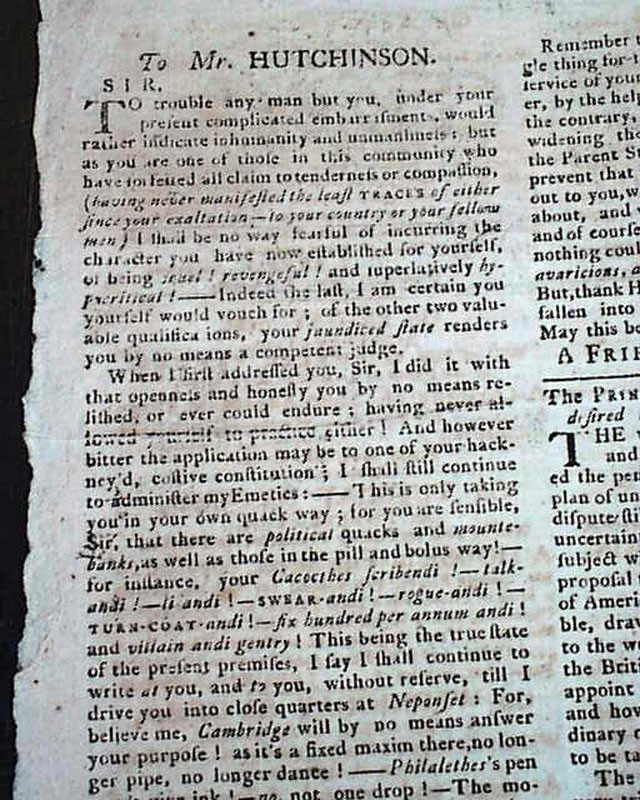 To Mr. HUTCHINSON.
S I R,
TO trouble any man but you, under your
preſent complicated embarraſſments, would
rather indicate inhumanity and unmanlineſs; but
as you are one of thoſe in this community who
have forfeited all claim to tenderneſs or compaſſion,
(having never manifeſted the leaſt TRACES of either
ſince your exaltation—to your country or your fellow
men) I ſhall be no way fearful of incurring the
character you have now eſtabliſhed for yourſelf,
of being cruel! revengeful! and ſuperlatively hy-
pocritical!——Indeed the laſt, I am certain you
yourſelf would vouch for; of the other two valu-
able qualifica ions, your jaundiced ſtate renders
you by no means a competent judge.
When I firſt addreſſed you, Sir, I did it with
that openneſs and honeſty you by no means re-
liſhed, or ever could endure; having never al-
lowed yourſelf to practice either! And however
bitter the application may be to one of your hack-
ney'd, coſtive conſtitution; I ſhall ſtill continue
to adminiſter my Emetics:——This is only taking
you in your own quack way; for you are ſenſible,
Sir, that there are political quacks and mounte-
banks, as well as thoſe in the pill and bolus way!—
for inſtance, your Cacoethes ſcribendi!—talk-
andi!—li andi!—SWEAR-andi!—rogue-andi!—
TURN-COAT-andi!—ſix hundred per annum andi!
and villain andi gentry! This being the true ſtate
of the preſent premiſes, I ſay I ſhall continue to
write at you, and to you, without reſerve, till I
drive you into cloſe quarters at Neponſet: For,
believe me, Cambridge will by no means anſwer
your purpoſe! as it's a fixed maxim there, no lon-
ger pipe, no longer dance!——Philalethes's pen
ink!—no, not one drop!—The mo-
Remember
gle thing for
ſervice of your
er, by the help
the contrary,
widening the
the Parent
prevent that
out to you, w
about, and
and of courſe
nothing coul
avaricious, a
But, thank H
fallen into
May this be
A FRI
The PRIN
deſired
THE
and
ed the pe
plan of un
diſputes
uncertain
ſubject w
propoſal
of Ameri
ble, draw
to the w
the Briti
appoint
and how
dinary
to be ta
The